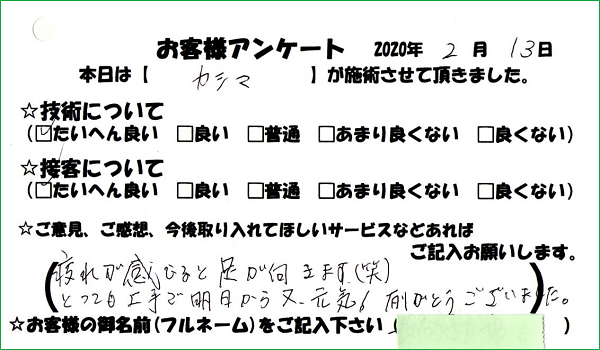 お客様アンケート 2020年 2月 13日
本日は【 カシマ 】が施術させて頂きました。
☆技術について
(☑たいへん良い □良い □普通 □あまり良くない □良くない)
☆接客について
(☑たいへん良い □良い □普通 □あまり良くない □良くない)
☆ご意見、ご感想、今後取り入れてほしいサービスなどあれば
ご記入お願いします。
(疲れが感じると足が向きます(笑)
とっても上手で明日から又、元気! ありがとうございました。)
☆お客様の御名前(フルネーム)をご記入下さい(